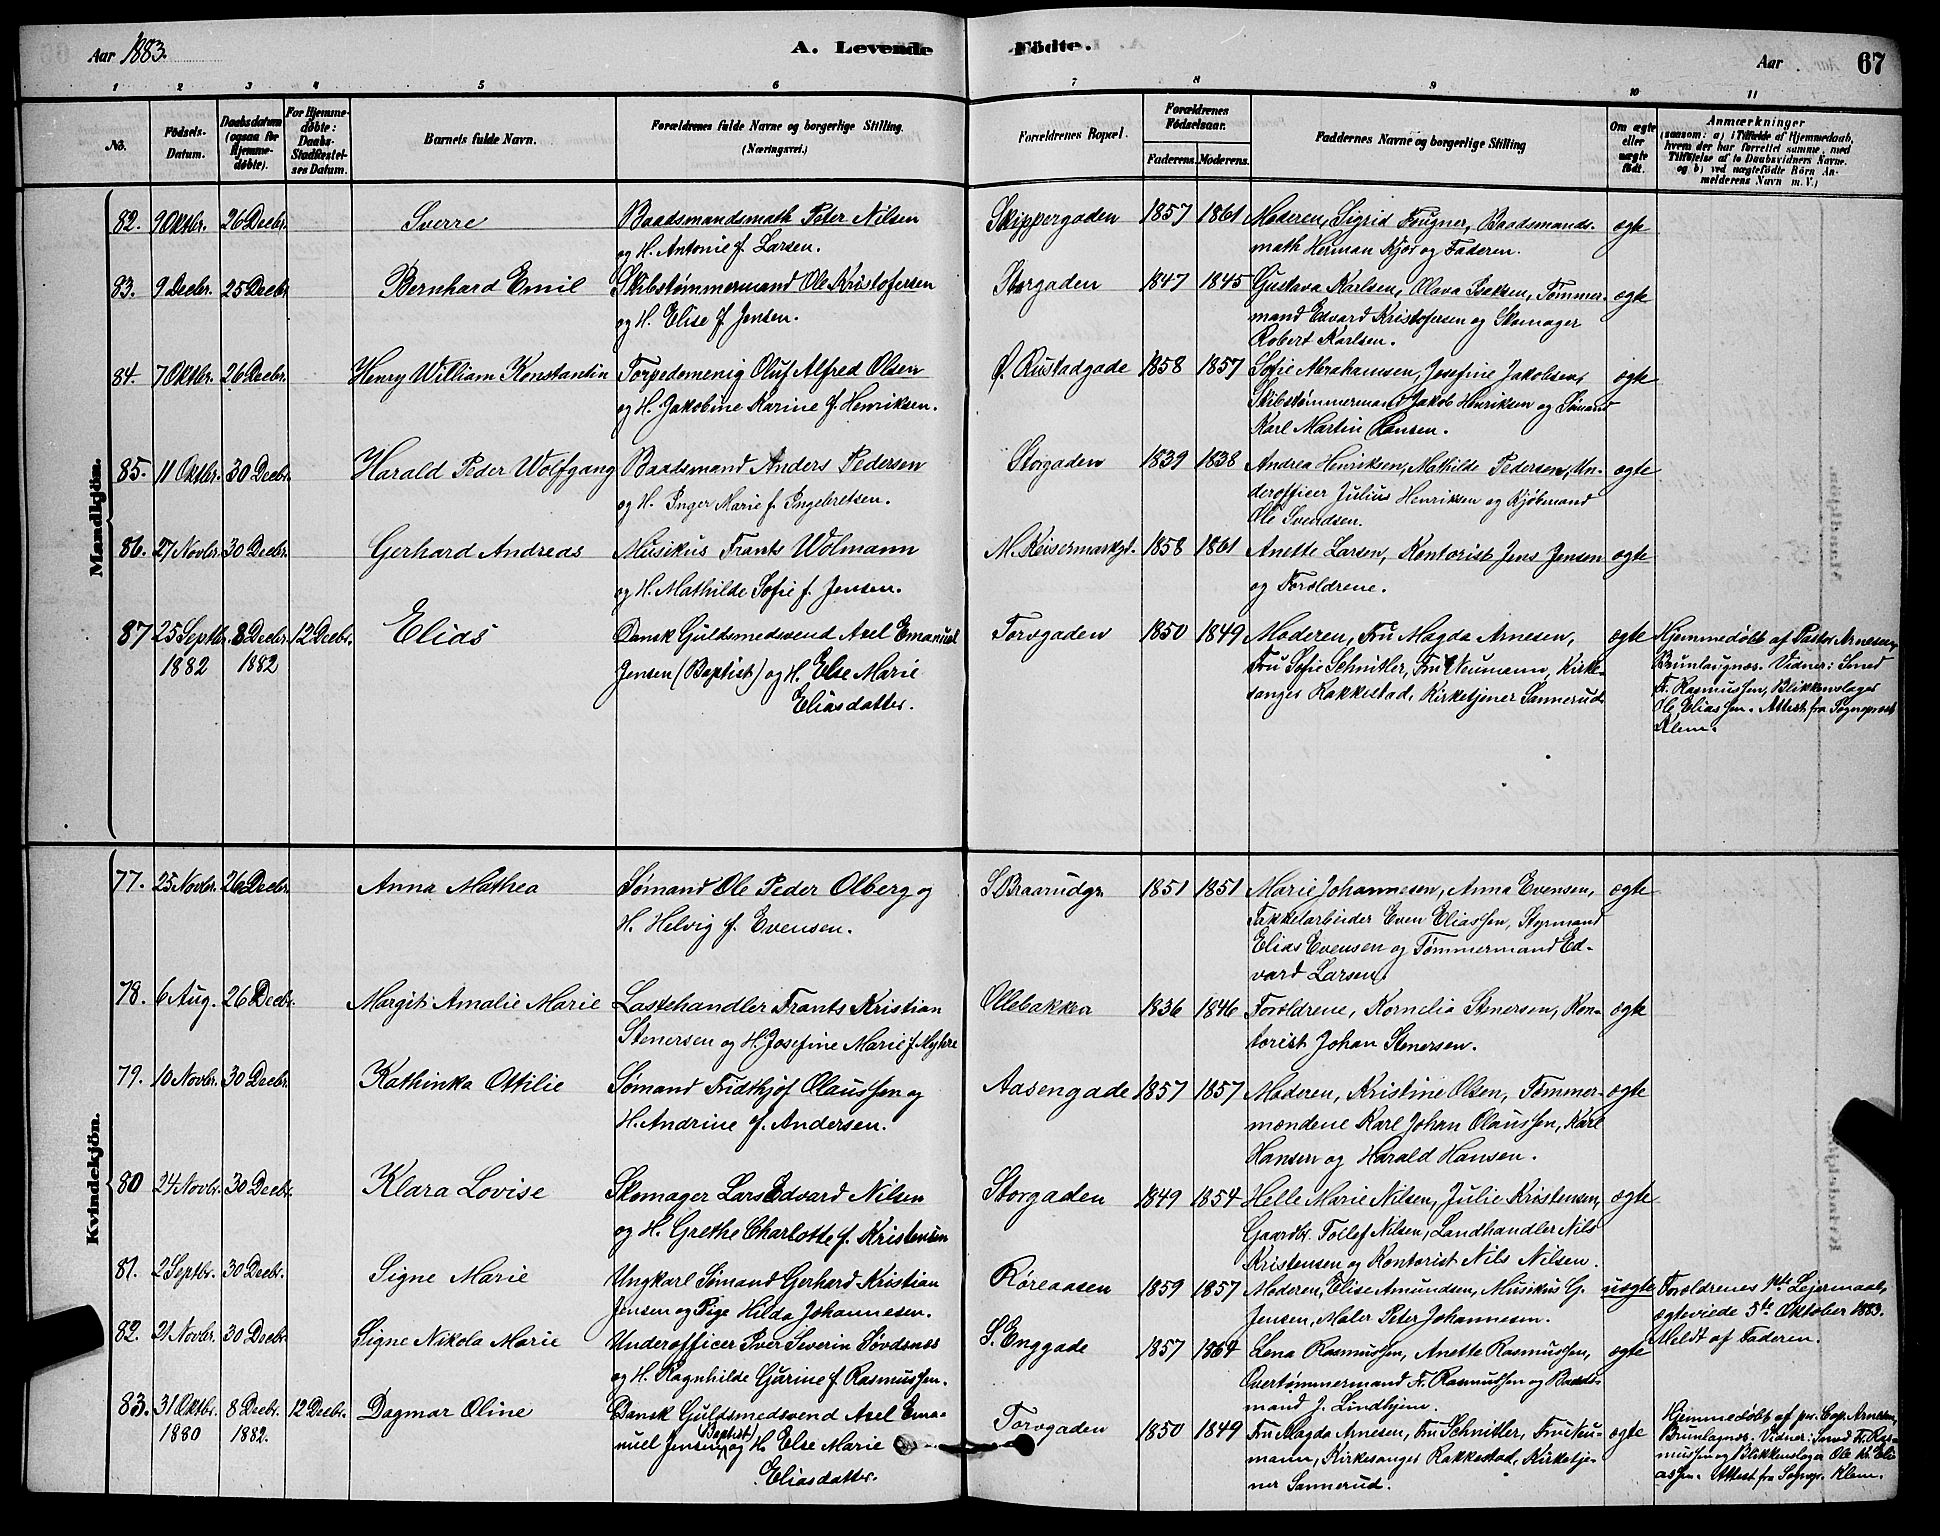 Aar 1883.
A. Levende
Födte.
Aar
67
1 2 3 4 5 6
7 8 9 10 11
No.
Födsels-Datum.
Daabsdatum (ogsaa for Hjemmedøbte).
For Hjemmedøbte: Daabs-Stadfæstelses Datum.
Barnets fulde Navn.
Forældrenes fulde Navne og borgerlige Stilling. (Næringsvei.)
Forældrenes Bopæl.
Forældrenes Födselsaar.
Faderens. Moderens.
Faddernes Navne og borgerlige Stilling
Om ægte eller uægte født.
Anmærkninger
(saasom: a) i Tilfælde af Hjemmedaab, hvem der har forrettet samme, med Tilføielse af to Daabsvidners Navne. og b) ved uægtefödte Börn Anmelderens Navn m. V.)
Mandkjön.
82. 9 Oktbr. 26 Decbr. Sverre Baadsmandsmath Peter Nilsen Skippergaden 1857 1861 Moderen, Sigrid Frugner, Baadsmands- ægte
og H. Antonie f. Larsen. math Herman Kjær og Faderen.
83. 9 Decbr. 25 Decbr Bernhard Emil Skibstømmermand Ole Kristofersen Storgaden 1847 1845 Gustava Karlsen, Olava Isaksen, Tømmer- ægte
og H. Elise f. Jensen. mand Edvard Kristofersen og Skomager
Robert Karlsen.
84. 7 Oktbr. 26 Decbr. Henry William Konstantin Torpedomenig Oluf Alfred Olsen Ø. Rustadgade 1858 1857 Sofie Abrahamsen, Josefine Jakobsen, ægte
og H. Jakobine Karine f. Henriksen. Skibstømmermand Jakob Henriksen og Sømand
Karl Martin Hansen.
85. 11 Oktbr. 30 Decbr. Harald Peder Wolfgang Baadsmand Anders Pedersen Storgaden 1839 1838 Andrea Henriksen, Mathilde Pedersen, Un- ægte
og H. Inger Marie f. Ingebretsen. derofficer Julius Henriksen og Kjøbmand
Ole Svendsen.
86. 27 Novbr. 30 Decbr. Gerhard Andreas Musikus Frants Wolmann M. Keisermarkgt. 1858 1861 Anette Larsen, Kontorist Jens Jensen ægte
og H. Mathilde Sofie f. Jensen. og Forældrene.
87 25 Septbr. 8 Decbr. 12 Decbr. Elias Dansk Guldsmedsvend Axel Emanuel Torvgaden 1850 1849 Moderen, Fru Magda Arnesen, ægte Hjemmedøbt af Pastor Arnesen,
1882 1882 Jensen (Baptist) og H. Else Marie Fru Sofie Schnitler, Fru Neumann, Kirke- Brunlaugnæs. Vidner: Smed
Eliasdatter. sanger Rakkestad, Kirketjener Sannerud. Fr. Rasmussen, Blikkenslager
Ole Eliassen. Attest fra Sogneprest
Klem.
Kvindekjön.
77. 25 Novbr. 26 Decbr. Anna Mathea Sømand Ole Peder Olberg og S. Braarudgr. 1851 1851 Marie Johannesen, Anna Evensen, ægte
H. Helvig f. Evensen. Takkelarbeider Even Eliassen, Styrmand
Elias Evensen og Tømmermand Ed-
vard Larsen.
78. 6 Aug. 26 Decbr. Margit Amalie Marie Lastehandler Frants Kristian Ollebakken 1836 1846 Forældrene, Kornelia Stenersen, Kon- ægte
Stenersen og H. Josefine Marie f. Myhre torist Johan Stenersen.
79. 10 Novbr. 30 Decbr. Kathinka Ottilie Sømand Fridthjof Olaussen og Aasengade 1857 1857 Moderen, Kristine Olsen, Tømmer- ægte
H. Andrine f. Andersen. mændene Karl Johan Olaussen, Karl
Hansen og Harald Hansen.
80 24 Novbr. 30 Decbr. Klara Lovise Skomager Lars Edvard Nilsen Storgaden 1849 1854 Helle Marie Nilsen, Julie Kristensen, ægte
og H. Grethe Charlotte f. Kristensen Gaardbr. Tollef Nilsen, Landhandler Nils
Kristensen og Kontorist Nils Nilsen.
81. 2 Septbr. 30 Decbr. Signe Marie Ungkarl Sømand Gerhard Kristian Røreaasen 1859 1857 Moderen, Elise Amundsen, Musikus G. uægte Forældrenes 1ste Leiermaal,
Jensen og Pige Hilda Johannesen. Jensen, Maler Peter Johannesen. ægteviede 5te Oktober 1883.
Meldt af Faderen.
82. 21 Novbr. 30 Decbr. Signe Nikola Marie Underofficer Iver Severin Søvdsnes S. Enggade 1857 1864 Lena Rasmussen, Anette Rasmussen, ægte
og H. Ragnhilde Gurine f. Rasmussen. Overtømmermand Fr. Rasmussen og Baads-
mand J. Lindhjem.
83. 31 Oktbr. 8 Decbr. 12 Decbr. Dagmar Oline Dansk Guldsmedsvend Axel Ema- Torvgaden 1850 1849 Fru Magda Arnesen, Fru Schnitler, Fru Neu- ægte Hjemmedøbt af pr. Cap. Arnesen,
1880 1882. nuel Jensen (Baptist) og H. Else Marie mann, Kirkesanger Rakkestad, Kirketje- Brunlagnæs. Vidner: Smed Fr. Ras-
Eliasdatter. ner Sannerud. mussen og Blikkenslager Ole Kr. Eli-
assen. Attest fra Sognepr. Klem.